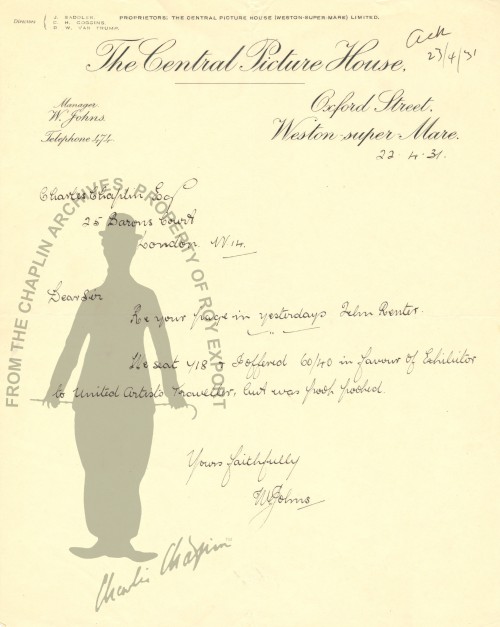 Directors
J. KABOLER.
C. H. COGGINS.
D. W. VAN TRUMP.
PROPRIETORS: THE CENTRAL PICTURE HOUSE (WESTON-SUPER-MARE) LIMITED.
Ack
23/4/31
The Central Picture House,
Manager
W. Johns.
Telephone 474.
Oxford Street,
Weston-super-Mare.
22.4.31.
Charles Chaplin, Esq
25 Barons Court
London. W14.
Dear Sir
Re your page in yesterdays Film Renter.
We seat 418 & I offered 60/40 in favour of Exhibitor
to United Artists Traveller, but was pooh poohed.
Yours faithfully
W Johns
FROM THE CHAPLIN ARCHIVES, PROPERTY OF ROY EXPORT
Charlie Chaplin